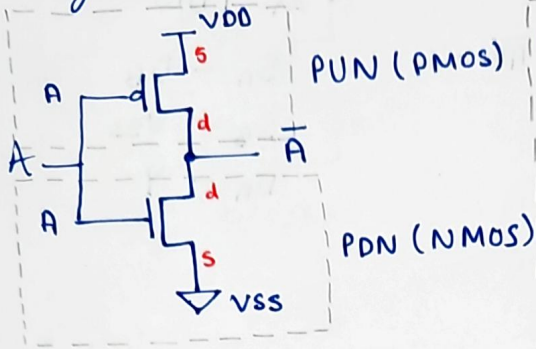 VDD
S
PUN (PMOS)
A
d
A
A̅
d
A
PDN (NMOS)
S
VSS